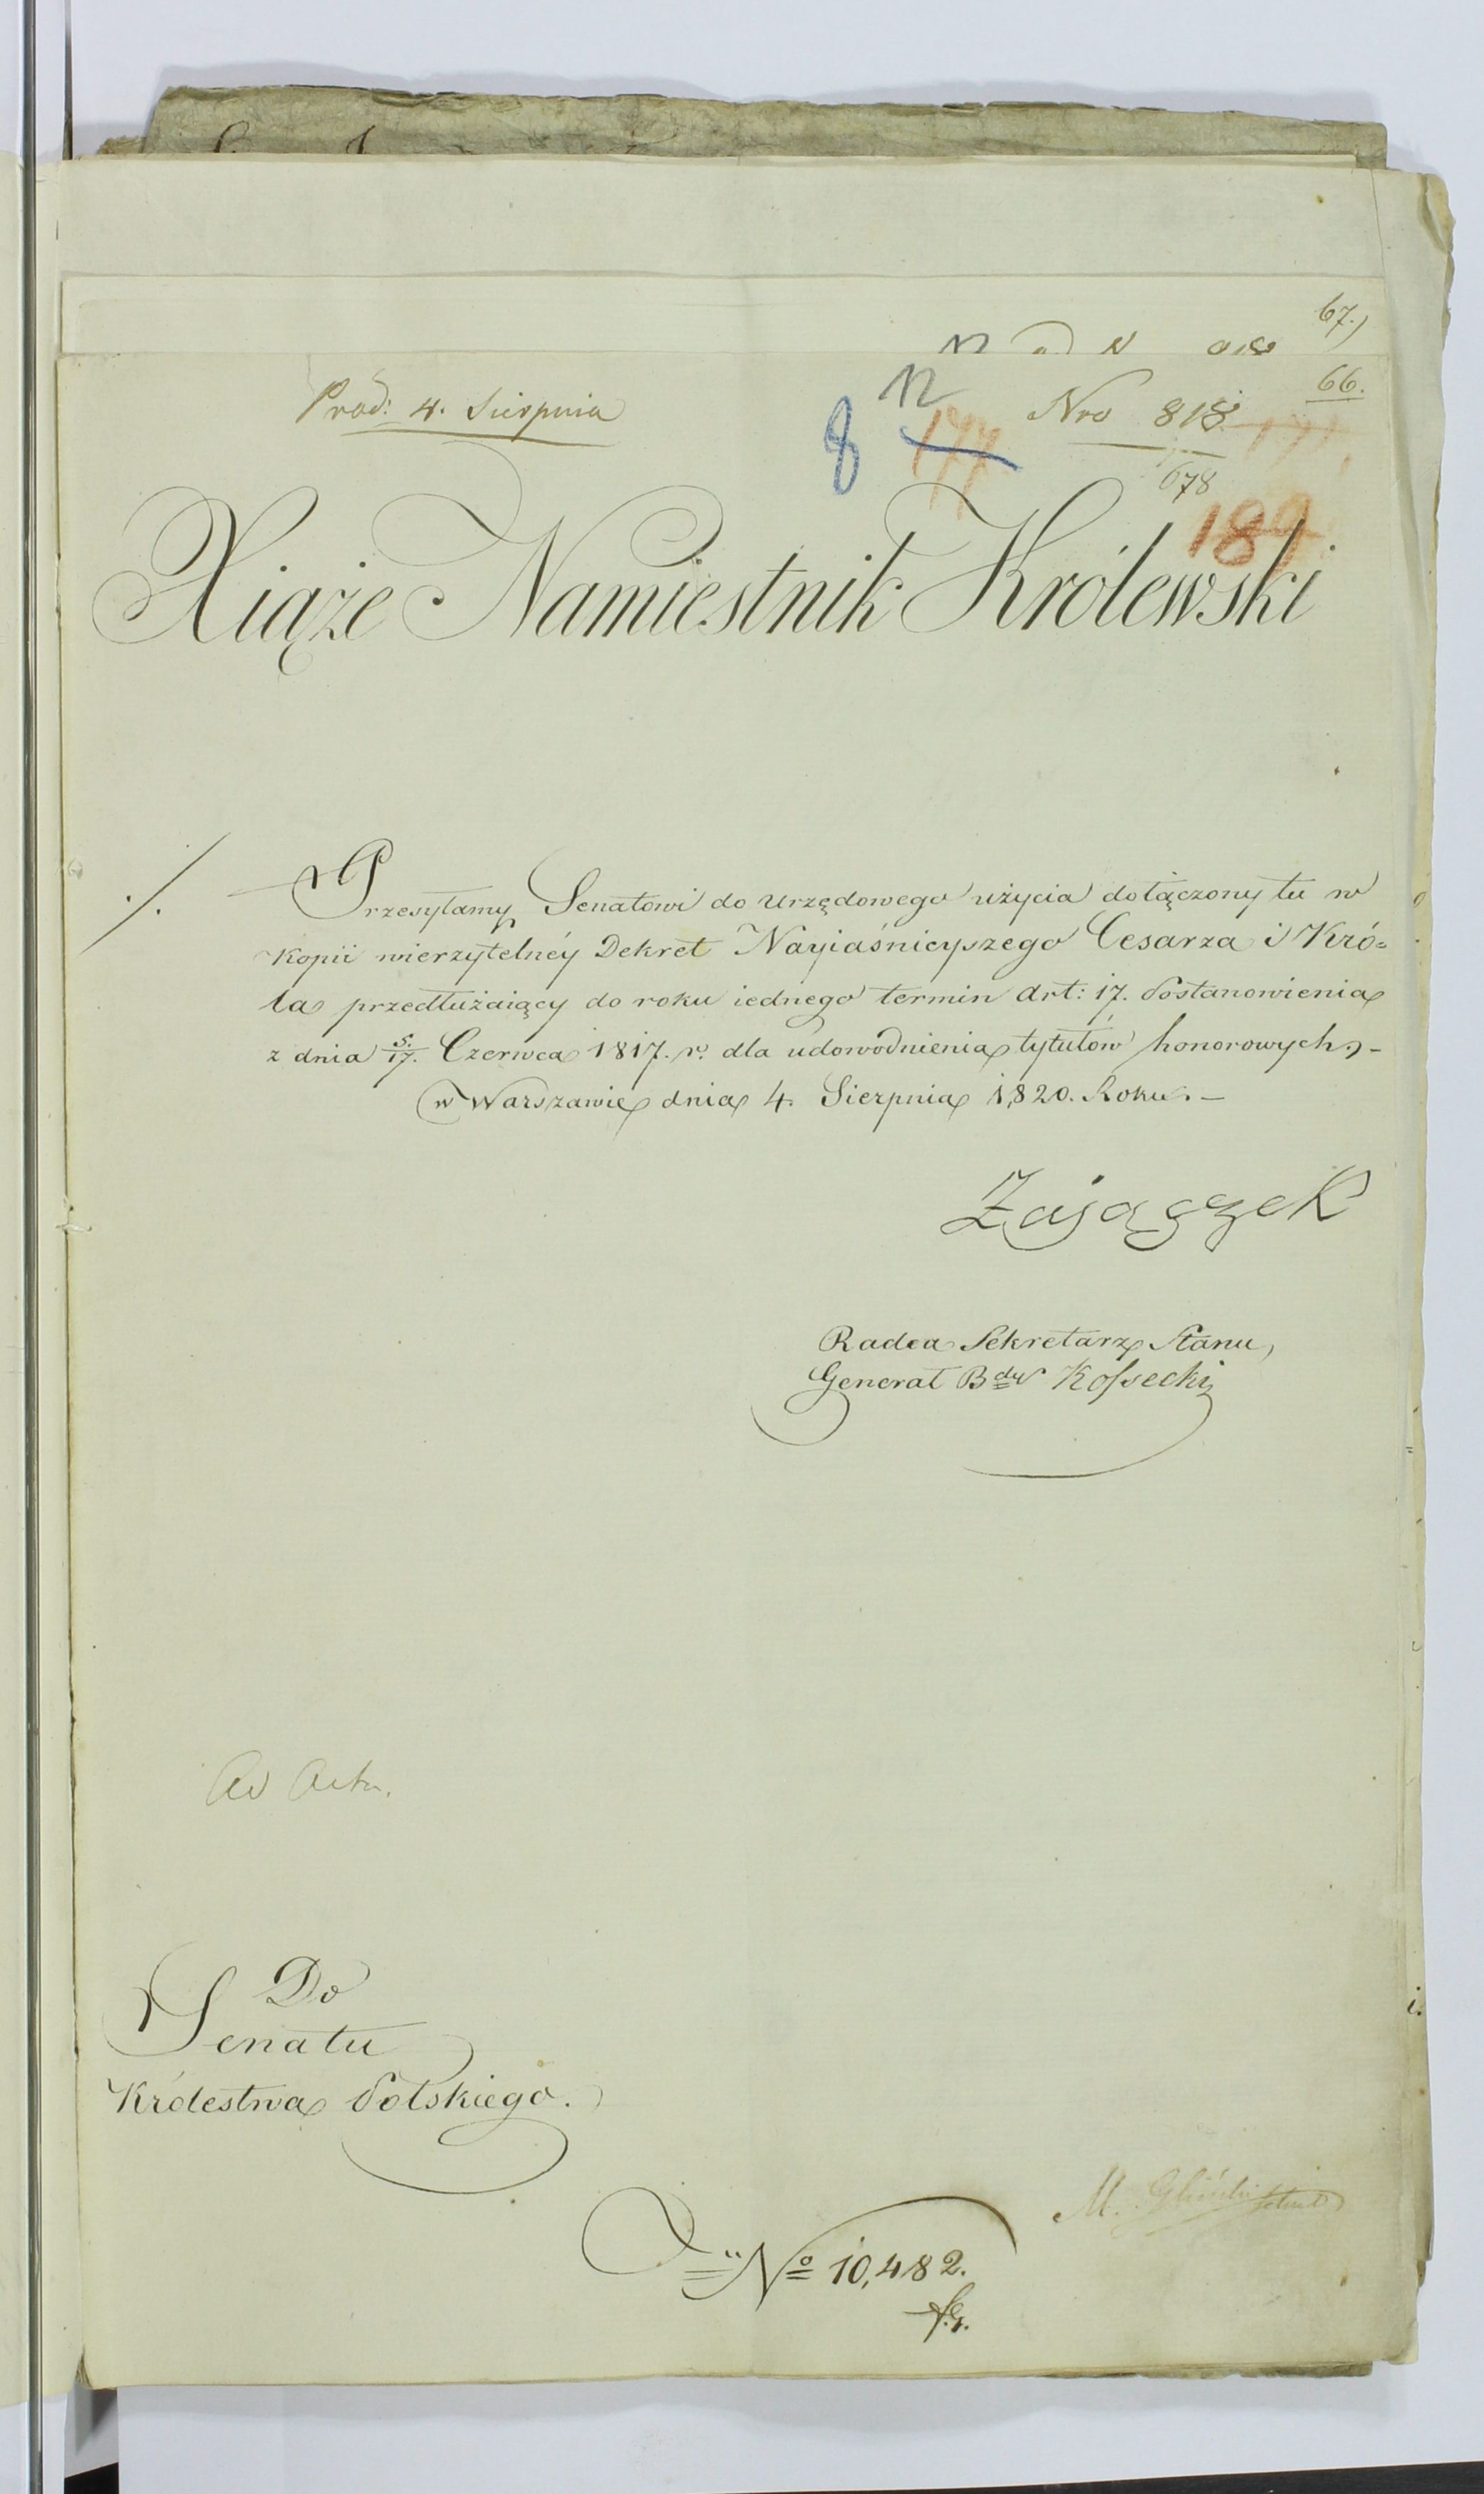 67.)
66.
Prod: 4. Sierpnia
Nro 818.
8 177
678
189
Xiąże Namiestnik Królewski
Przesyłamy Senatowi do urzędowego użycia dołączony tu w
Kopii wierzytelnéy Dekret Nayiaśnieyszego Cesarza i Kró=
la przedłużaiący do roku iednego termin Art: 17. Postanowienia
z dnia 5./17. Czerwca 1817. r. dla udowodnienia tytułów honorowych.-
w Warszawie dnia 4. Sierpnia 1,820. Roku.-
Zajączek
Radca Sekretarz Stanu,
Generał Bdy Kossecki
Ad Acta.
Do
Senatu
Królestwa Polskiego.
No 10,482.
M.